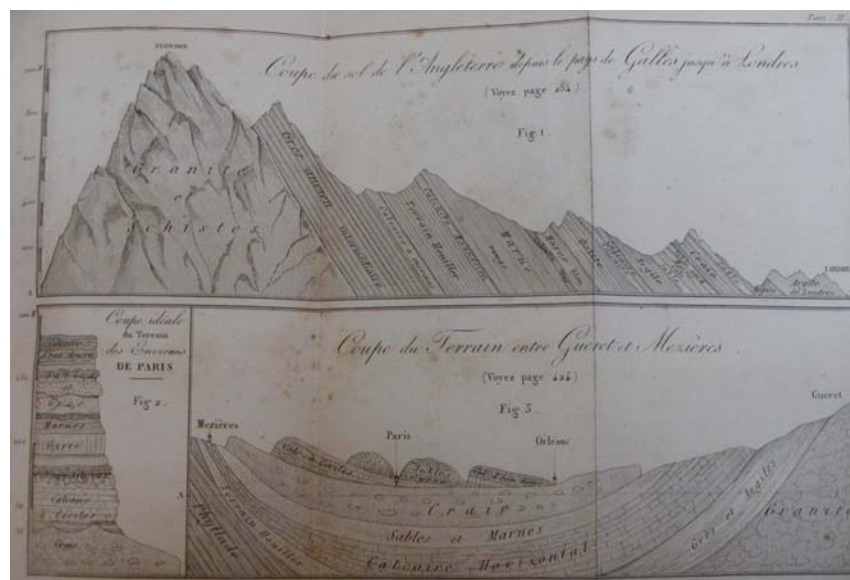 Tom. II
SNOWDON
Coupe du sol de l'Angleterre depuis le pays de Galles jusqu'à Londres
(Voyez page 234)
Fig 1.
Granite
et
Schistes
Grès ancien
intermédiaire
Terrain Houiller
Calcaire Magnésien
Marne
rouge
Marne bleu
Oolite
Argile
Craie
LONDRES
Argile
de Londres
Coupe idéale
du Terrain
des Environs
DE PARIS
Fig 2.
Marnes
Gypse
Calcaire
à Cerites
Craie
Coupe du Terrain entre Gueret et Mezières
(Voyez page 424)
Fig 3.
Mezières
Paris
Orléans
Gueret
Calc. à Cerites
Sables
A
Craie
Sables et Marnes
Calcaire Horizontal
Terrain Houiller
Phyllade
Grès et Argiles
Granite